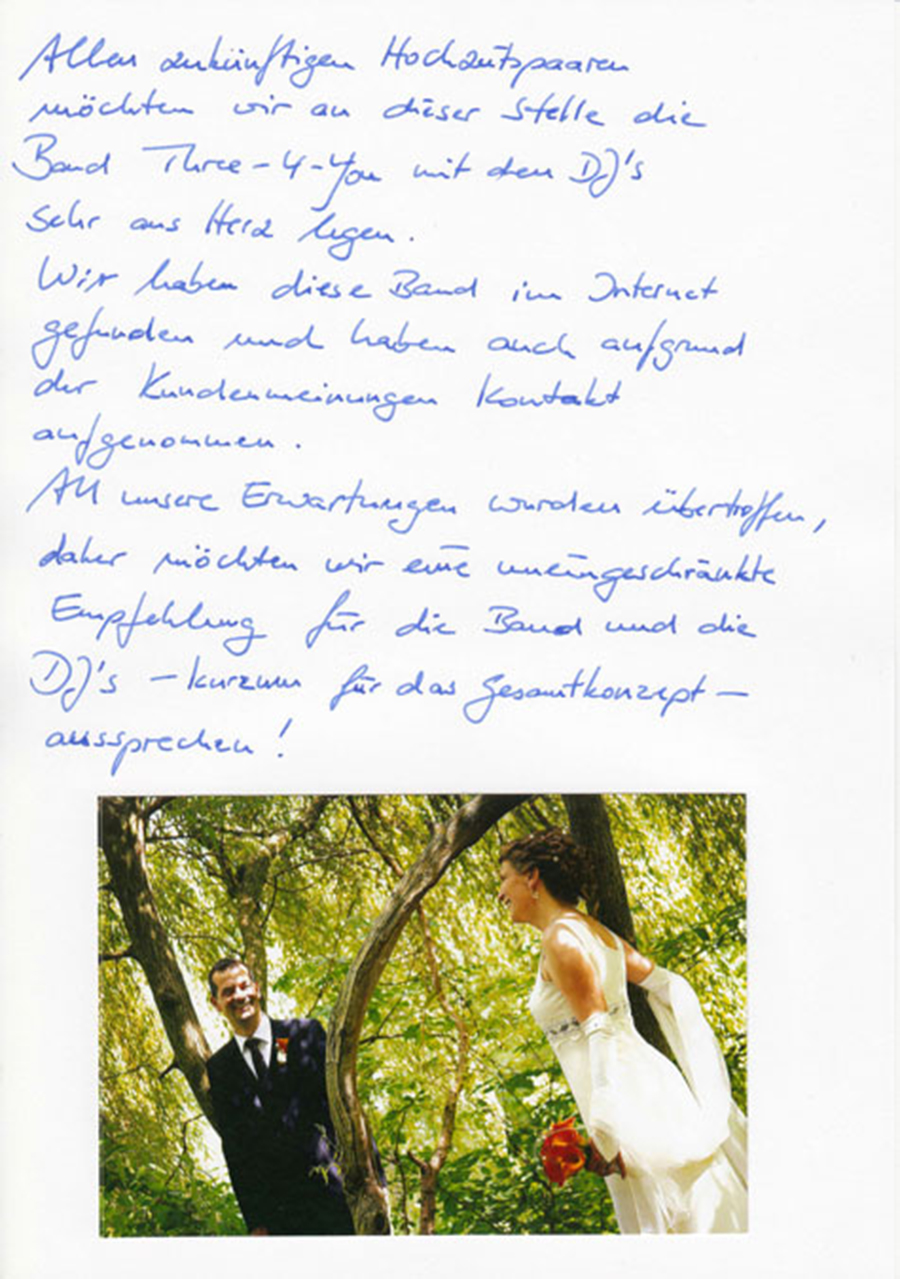 Allen zukünftigen Hochzeitspaaren
möchten wir an dieser Stelle die
Band Three-4-You mit den DJ's
sehr ans Herz legen.
Wir haben diese Band im Internet
gefunden und haben auch aufgrund
der Kundenmeinungen Kontakt
aufgenommen.
All unsere Erwartungen wurden übertroffen,
daher möchten wir eine uneingeschränkte
Empfehlung für die Band und die
DJ's - kurzum für das Gesamtkonzept -
aussprechen!